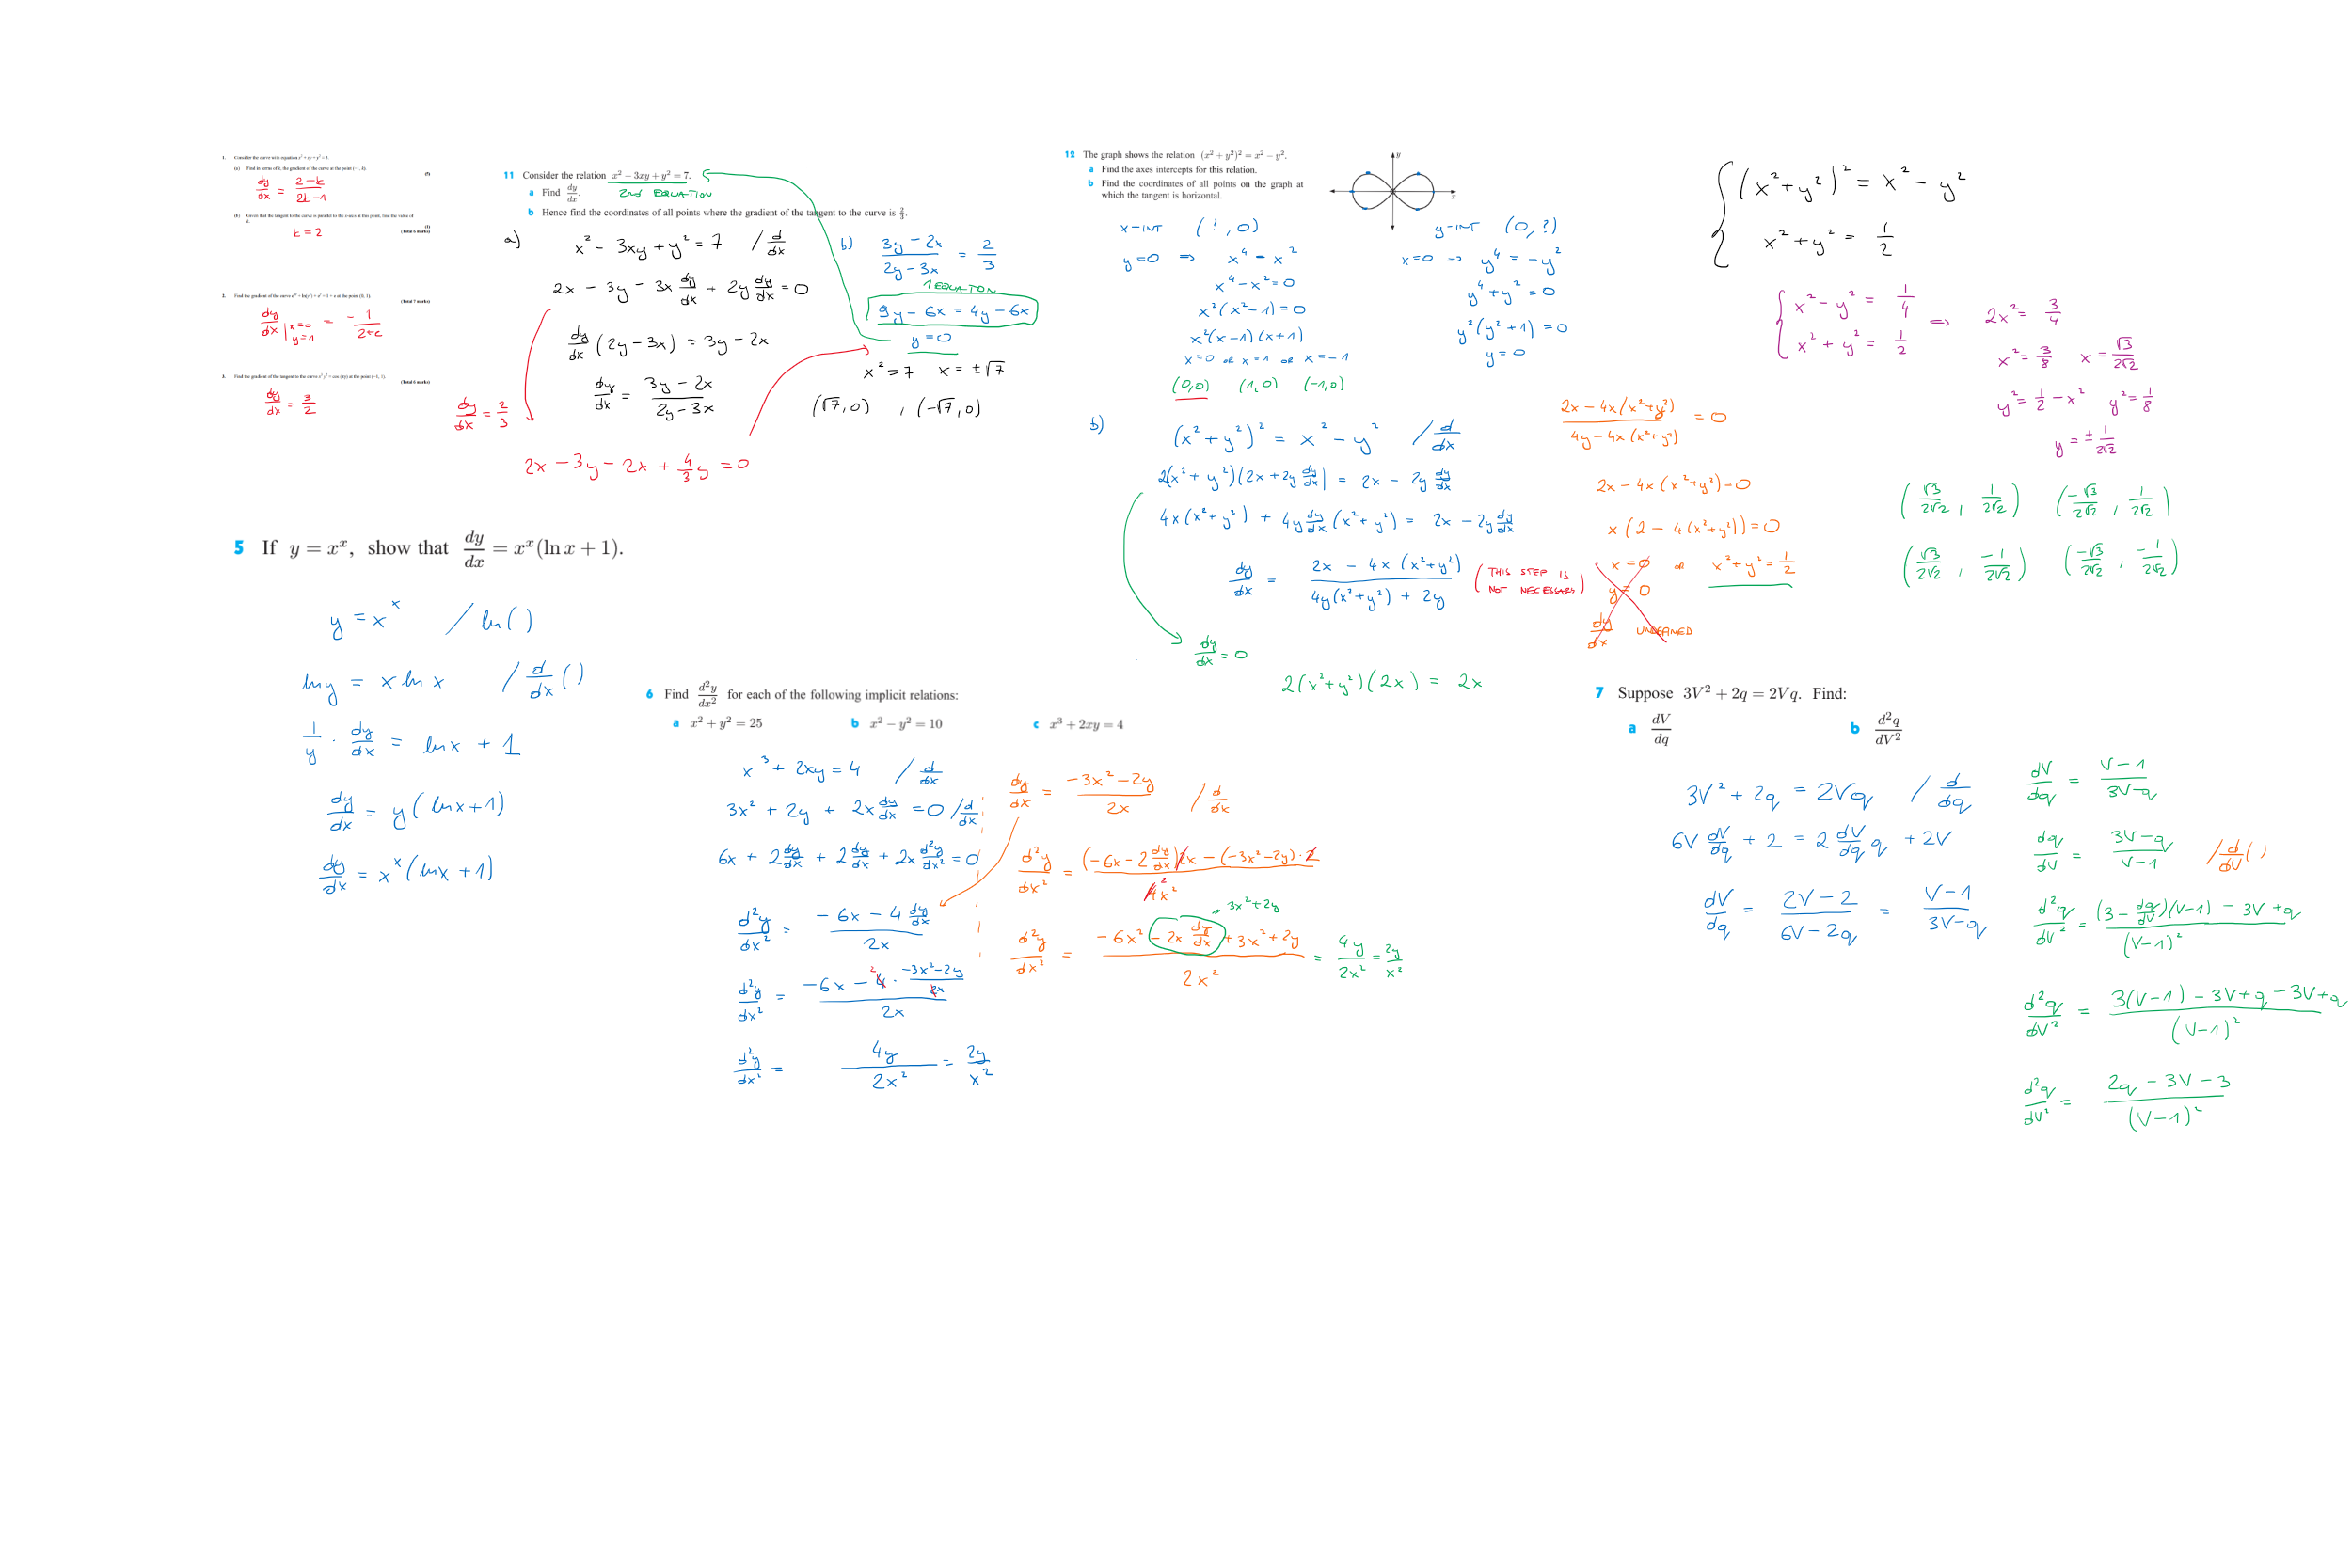 1. Consider the curve with equation x² + xy + y² = 3.
(a) Find in terms of k, the gradient of the curve at the point (−1, k).
(5)
dy/dx = (2−k)/(2k−1)
(b) Given that the tangent to the curve is parallel to the x-axis at this point, find the value of k.
(1)
(Total 6 marks)
k = 2
2. Find the gradient of the curve at the point (0, 1).
(Total 7 marks)
dy/dx | x=0 y=1 = −1/(2+e)
3. Find the gradient of the tangent to the curve at the point (−1, 1).
(Total 6 marks)
dy/dx = 3/2
11 Consider the relation x² − 3xy + y² = 7.
2nd EQUATION
a Find dy/dx.
b Hence find the coordinates of all points where the gradient of the tangent to the curve is 2/3.
a) x² − 3xy + y² = 7 / d/dx
2x − 3y − 3x dy/dx + 2y dy/dx = 0
dy/dx (2y − 3x) = 3y − 2x
dy/dx = (3y − 2x)/(2y − 3x)
dy/dx = 2/3
2x − 3y − 2x + 4/3 y = 0
b) (3y − 2x)/(2y − 3x) = 2/3
1 EQUATION
9y − 6x = 4y − 6x
y = 0
x² = 7 x = ±√7
(√7, 0) , (−√7, 0)
12 The graph shows the relation (x² + y²)² = x² − y².
a Find the axes intercepts for this relation.
b Find the coordinates of all points on the graph at
which the tangent is horizontal.
y
x
x-INT (?, 0)
y=0 ⇒ x⁴ = x²
x⁴ − x² = 0
x²(x² − 1) = 0
x²(x − 1)(x + 1)
x=0 or x=1 or x=−1
(0,0) (1,0) (−1,0)
y-INT (0, ?)
x=0 ⇒ y⁴ = −y²
y⁴ + y² = 0
y²(y² + 1) = 0
y = 0
b) (x² + y²)² = x² − y² / d/dx
2(x² + y²)(2x + 2y dy/dx) = 2x − 2y dy/dx
4x(x² + y²) + 4y dy/dx (x² + y²) = 2x − 2y dy/dx
dy/dx = (2x − 4x(x² + y²))/(4y(x² + y²) + 2y)
(THIS STEP IS
NOT NECESSARY)
dy/dx = 0
2(x² + y²)(2x) = 2x
(2x − 4x(x² + y²))/(4y − 4x(x² + y²)) = 0
2x − 4x(x² + y²) = 0
x(2 − 4(x² + y²)) = 0
x = 0 or x² + y² = 1/2
y = 0
dy/dx UNDEFINED
(x² + y²)² = x² − y²
x² + y² = 1/2
x² − y² = 1/4
x² + y² = 1/2
⇒ 2x² = 3/4
x² = 3/8 x = √3/(2√2)
y² = 1/2 − x² y² = 1/8
y = ± 1/(2√2)
(√3/(2√2), 1/(2√2)) (−√3/(2√2), 1/(2√2))
(√3/(2√2), −1/(2√2)) (−√3/(2√2), −1/(2√2))
5 If y = xˣ, show that dy/dx = xˣ(ln x + 1).
y = xˣ / ln()
ln y = x ln x / d/dx ()
1/y · dy/dx = ln x + 1
dy/dx = y(ln x + 1)
dy/dx = xˣ(ln x + 1)
6 Find d²y/dx² for each of the following implicit relations:
a x² + y² = 25 b x² − y² = 10 c x³ + 2xy = 4
x³ + 2xy = 4 / d/dx
3x² + 2y + 2x dy/dx = 0 / d/dx
6x + 2 dy/dx + 2 dy/dx + 2x d²y/dx² = 0
d²y/dx² = (−6x − 4 dy/dx)/(2x)
d²y/dx² = (−6x − 4 2 · (−3x² − 2y)/(2x))/(2x)
d²y/dx² = 4y/(2x²) = 2y/x²
dy/dx = (−3x² − 2y)/(2x) / d/dx
d²y/dx² = ((−6x − 2 dy/dx)2x − (−3x² − 2y)·2)/(4x²) 2
= 3x² + 2y
d²y/dx² = (−6x² − 2x dy/dx + 3x² + 2y)/(2x²) = 4y/(2x²) = 2y/x²
7 Suppose 3V² + 2q = 2Vq. Find:
a dV/dq b d²q/dV²
3V² + 2q = 2Vq / d/dq
6V dV/dq + 2 = 2 dV/dq q + 2V
dV/dq = (2V − 2)/(6V − 2q) = (V − 1)/(3V − q)
dV/dq = (V − 1)/(3V − q)
dq/dV = (3V − q)/(V − 1) / d/dV ()
d²q/dV² = ((3 − dq/dV)(V − 1) − 3V + q)/(V − 1)²
d²q/dV² = (3(V − 1) − 3V + q − 3V + q)/(V − 1)²
d²q/dV² = (2q − 3V − 3)/(V − 1)²